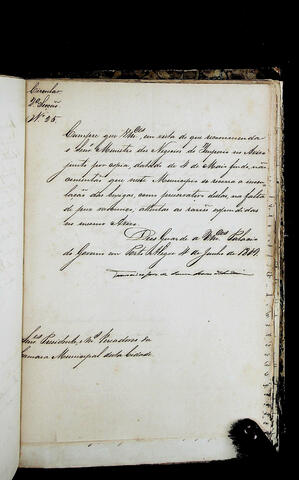 Circular
2ª Secção
Nº 25
Cumpre que Vmces, em vista do que recommenda
o Senr. Ministro dos Negocios do Imperio no Aviso
junto por copia, datado de 4 de Maio findo,
que n'este Municipio se
em preservativo della, na falta
de puz vaccinico, attentas as razões expendidas
no mesmo Aviso.
Deos Guarde a Vmces Palacio
do Governo em Porto Alegre 4 de Junho de 1849.
Snres Presidente, e Vereadores da
Camara Municipal desta Cidade